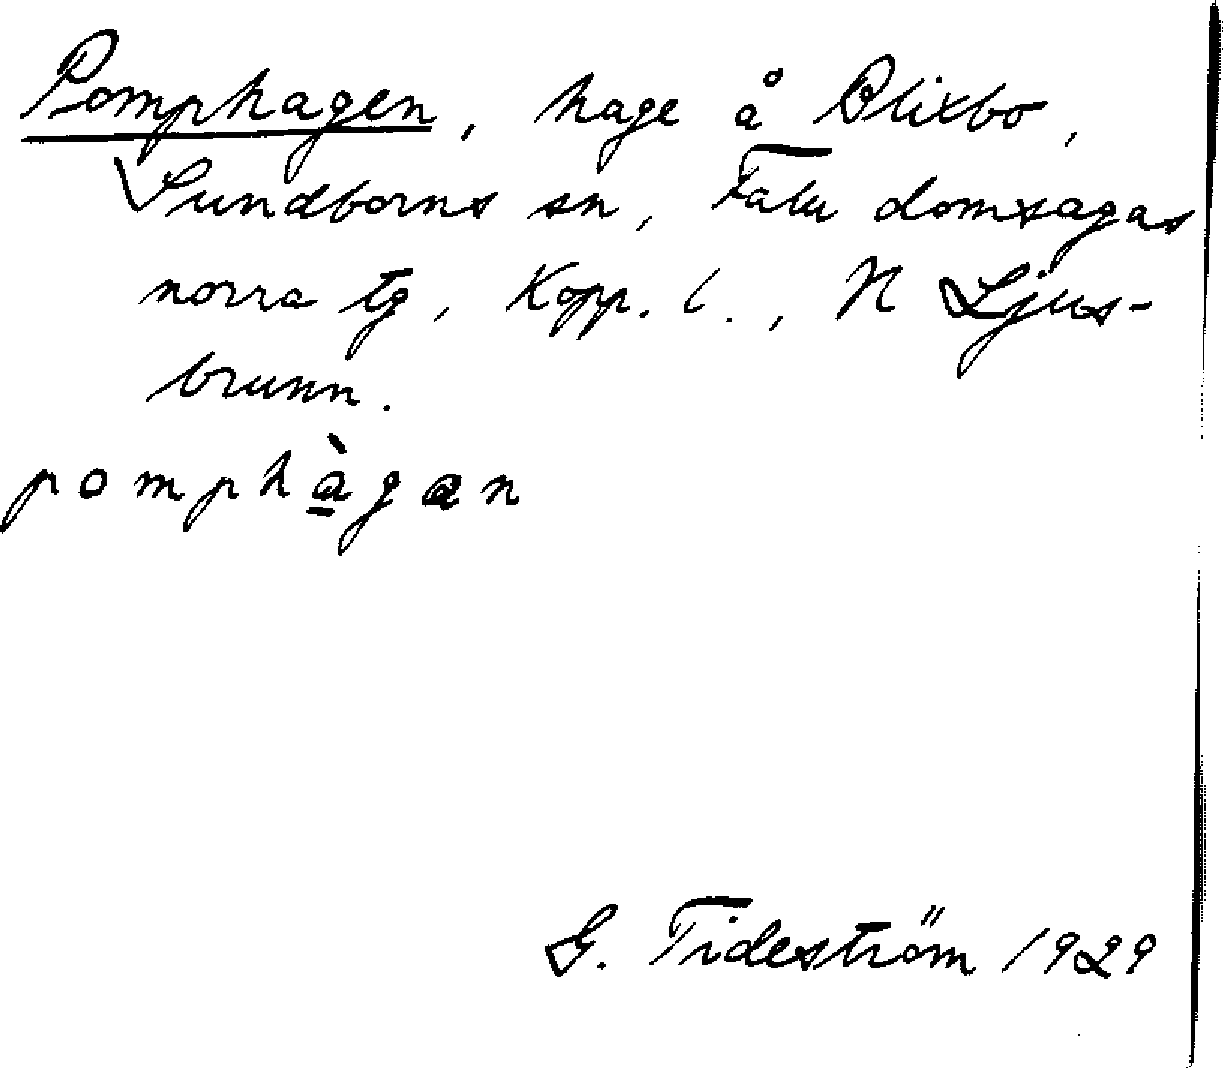 Pomphagen, hage å Blixbo,
Sundborns sn, Falu domsagas
norra tg, Kopp. l., N Ljus-
brunn.
pomphàgan
G. Tideström 1929